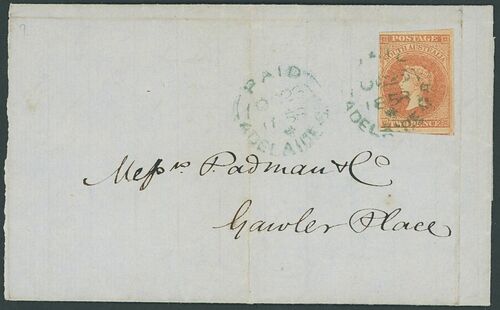 POSTAGE
SOUTH AUSTRALIA
TWO PENCE
PAID
ADELAIDE
ADELAIDE
Messrs Padman & Co
Gawler Place